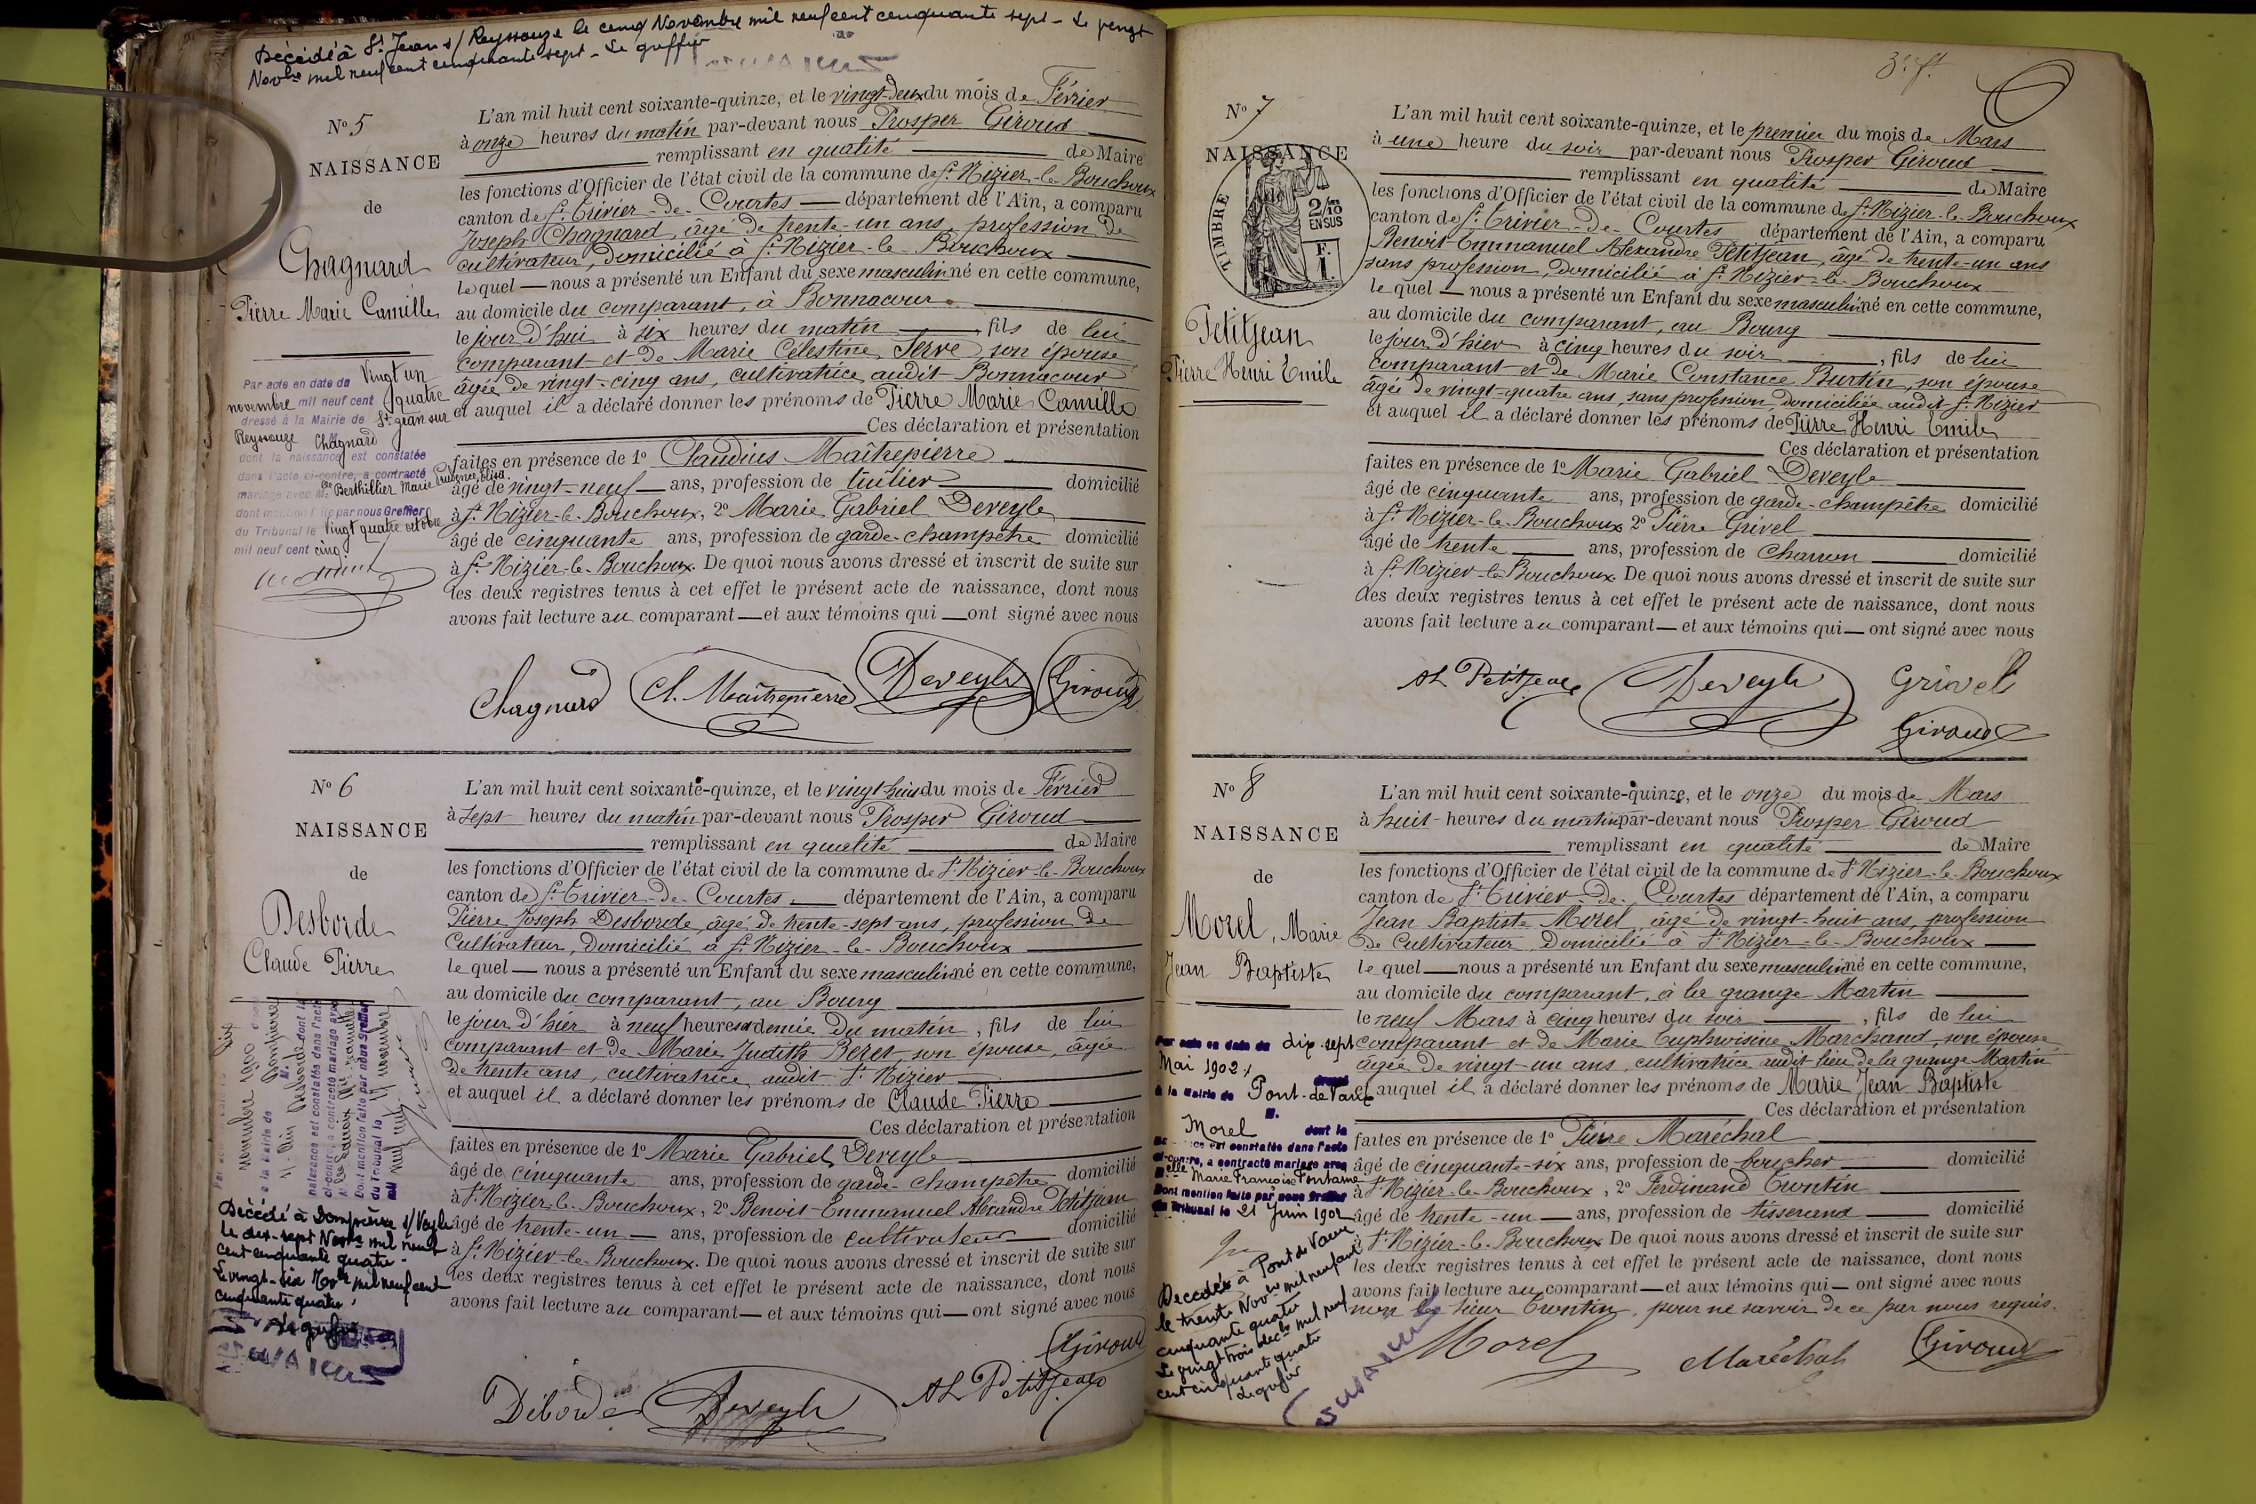 Décédé à St Jean s/ Reyssouze le cinq Novembre mil neuf cent cinquante sept - Le vingt
Novbre mil neuf cent cinquante sept - Le greffier
No 5
NAISSANCE
de
Chagnard
Pierre Marie Camille
Par acte en date du Vingt un
novembre mil neuf cent quatre
dressé à la Mairie de St Jean sur
Reyssouze Chagnard
dont la naissance est constatée
dans l'acte ci-contre, a contracté
mariage avec Mlle Berthillier Marie Prudence Elisa.
dont mention faite par nous Greffier
du Tribunal le Vingt quatre octobre
mil neuf cent cinq
L'an mil huit cent soixante-quinze, et le vingt-deux du mois de Février
à onze heures du matin par-devant nous Prosper Giroud
remplissant en qualité de Maire
les fonctions d'Officier de l'état civil de la commune de St-Nizier-le-Bouchoux
canton de St-Trivier-de-Courtes département de l'Ain, a comparu
Joseph Chagnard, âgé de trente-un ans, profession de
cultivateur, domicilié à St-Nizier-le-Bouchoux
lequel nous a présenté un Enfant du sexe masculin né en cette commune,
au domicile du comparant, à Bonnacour
le jour d'hui à six heures du matin, fils de lui
comparant et de Marie Célestine Terve, son épouse
âgée de vingt-cinq ans, cultivatrice audit Bonnacour
et auquel il a déclaré donner les prénoms de Pierre Marie Camille
Ces déclaration et présentation
faites en présence de 1o Claudius Maîtrepierre
âgé de vingt-neuf ans, profession de tuilier domicilié
à St-Nizier-le-Bouchoux, 2o Marie Gabriel Deveyle
âgé de cinquante ans, profession de garde-champêtre domicilié
à St-Nizier-le-Bouchoux. De quoi nous avons dressé et inscrit de suite sur
les deux registres tenus à cet effet le présent acte de naissance, dont nous
avons fait lecture au comparant et aux témoins qui ont signé avec nous
Chagnard Cl. Maîtrepierre Deveyle Giroud
No 6
NAISSANCE
de
Desborde
Claude Pierre
novembre 1900
à la Mairie de Dompierre
M. Desborde dont la
naissance est constatée dans l'acte
ci-contre, a contracté mariage avec
Dont mention faite par nous Greffier
du Tribunal le 17 novembre
mil neuf cent
Décédé à Dompierre s/ Veyle
le dix-sept Novbre mil neuf
cent cinquante quatre -
Le vingt-six Novbre mil neuf cent
cinquante quatre.
Le greffier
L'an mil huit cent soixante-quinze, et le vingt-huit du mois de Février
à sept heures du matin par-devant nous Prosper Giroud
remplissant en qualité de Maire
les fonctions d'Officier de l'état civil de la commune de St-Nizier-le-Bouchoux
canton de St-Trivier-de-Courtes département de l'Ain, a comparu
Pierre Joseph Desborde, âgé de trente-sept ans, profession de
Cultivateur, domicilié à St-Nizier-le-Bouchoux
lequel nous a présenté un Enfant du sexe masculin né en cette commune,
au domicile du comparant, au Bourg
le jour d'hier à neuf heures et demie du matin, fils de lui
comparant et de Marie Judith Beret, son épouse, âgée
de trente ans, cultivatrice audit St Nizier
et auquel il a déclaré donner les prénoms de Claude Pierre
Ces déclaration et présentation
faites en présence de 1o Marie Gabriel Deveyle
âgé de cinquante ans, profession de garde-champêtre domicilié
à St-Nizier-le-Bouchoux, 2o Benoit-Emmanuel Alexandre Petitjean
âgé de trente-un ans, profession de cultivateur domicilié
à St-Nizier-le-Bouchoux. De quoi nous avons dressé et inscrit de suite sur
les deux registres tenus à cet effet le présent acte de naissance, dont nous
avons fait lecture au comparant et aux témoins qui ont signé avec nous
Giroud
Déborde Deveyle Petitjean
3e ft
No 7
NAISSANCE
TIMBRE
2/10
EN SUS
F.
1.
Petitjean
Pierre Henri Emile
L'an mil huit cent soixante-quinze, et le premier du mois de Mars
à une heure du soir par-devant nous Prosper Giroud
remplissant en qualité de Maire
les fonctions d'Officier de l'état civil de la commune de St-Nizier-le-Bouchoux
canton de St-Trivier-de-Courtes département de l'Ain, a comparu
Benoit Emmanuel Alexandre Petitjean, âgé de trente-un ans
sans profession, domicilié à St-Nizier-le-Bouchoux
lequel nous a présenté un Enfant du sexe masculin né en cette commune,
au domicile du comparant, au Bourg
le jour d'hier à cinq heures du soir, fils de lui
comparant et de Marie Constance Burtin, son épouse
âgée de vingt-quatre ans, sans profession, domiciliée audit St-Nizier
et auquel il a déclaré donner les prénoms de Pierre Henri Emile
Ces déclaration et présentation
faites en présence de 1o Marie Gabriel Deveyle
âgé de cinquante ans, profession de garde-champêtre domicilié
à St-Nizier-le-Bouchoux 2o Pierre Grivel
âgé de trente ans, profession de charron domicilié
à St-Nizier-le-Bouchoux De quoi nous avons dressé et inscrit de suite sur
les deux registres tenus à cet effet le présent acte de naissance, dont nous
avons fait lecture au comparant et aux témoins qui ont signé avec nous
Petitjean Deveyle Grivel
Giroud
No 8
NAISSANCE
de
Morel, Marie
Jean Baptiste
Par acte en date du dix-sept
Mai 1902, dressé
à la Mairie de Pont-de-Vaux
M.
Morel dont la
naissance est constatée dans l'acte
ci-contre, a contracté mariage avec
Melle Marie Françoise Fontaine
Dont mention faite par nous Greffier
du Tribunal le 21 Juin 1902
Décédé à Pont de Vaux
le trente Novbre mil neuf cent
cinquante quatre
Le vingt trois Decbre mil neuf
cent cinquante quatre
Le greffier
L'an mil huit cent soixante-quinze, et le onze du mois de Mars
à huit heures du matin par-devant nous Prosper Giroud
remplissant en qualité de Maire
les fonctions d'Officier de l'état civil de la commune de St-Nizier-le-Bouchoux
canton de St-Trivier-de-Courtes département de l'Ain, a comparu
Jean Baptiste Morel, âgé de vingt-huit ans, profession
de Cultivateur, domicilié à St-Nizier-le-Bouchoux
lequel nous a présenté un Enfant du sexe masculin né en cette commune,
au domicile du comparant, à la grange Martin
le neuf Mars à cinq heures du soir, fils de lui
comparant et de Marie Euphroisine Marchand, son épouse
âgée de vingt-un ans, cultivatrice audit lieu de la grange Martin
et auquel il a déclaré donner les prénoms de Marie Jean Baptiste
Ces déclaration et présentation
faites en présence de 1o Pierre Maréchal
âgé de cinquante-six ans, profession de boucher domicilié
à St-Nizier-le-Bouchoux, 2o Ferdinand Trontin
âgé de trente-un ans, profession de tisserand domicilié
à St-Nizier-le-Bouchoux De quoi nous avons dressé et inscrit de suite sur
les deux registres tenus à cet effet le présent acte de naissance, dont nous
avons fait lecture au comparant et aux témoins qui ont signé avec nous
non le sieur Trontin, pour ne savoir de ce par nous requis.
Morel Maréchal Giroud